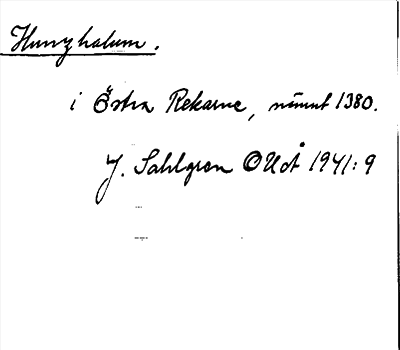 Hunzhalum.
i Östra Rekarne, nämnt 1380.
J. Sahlgren OUÅ 1941:9